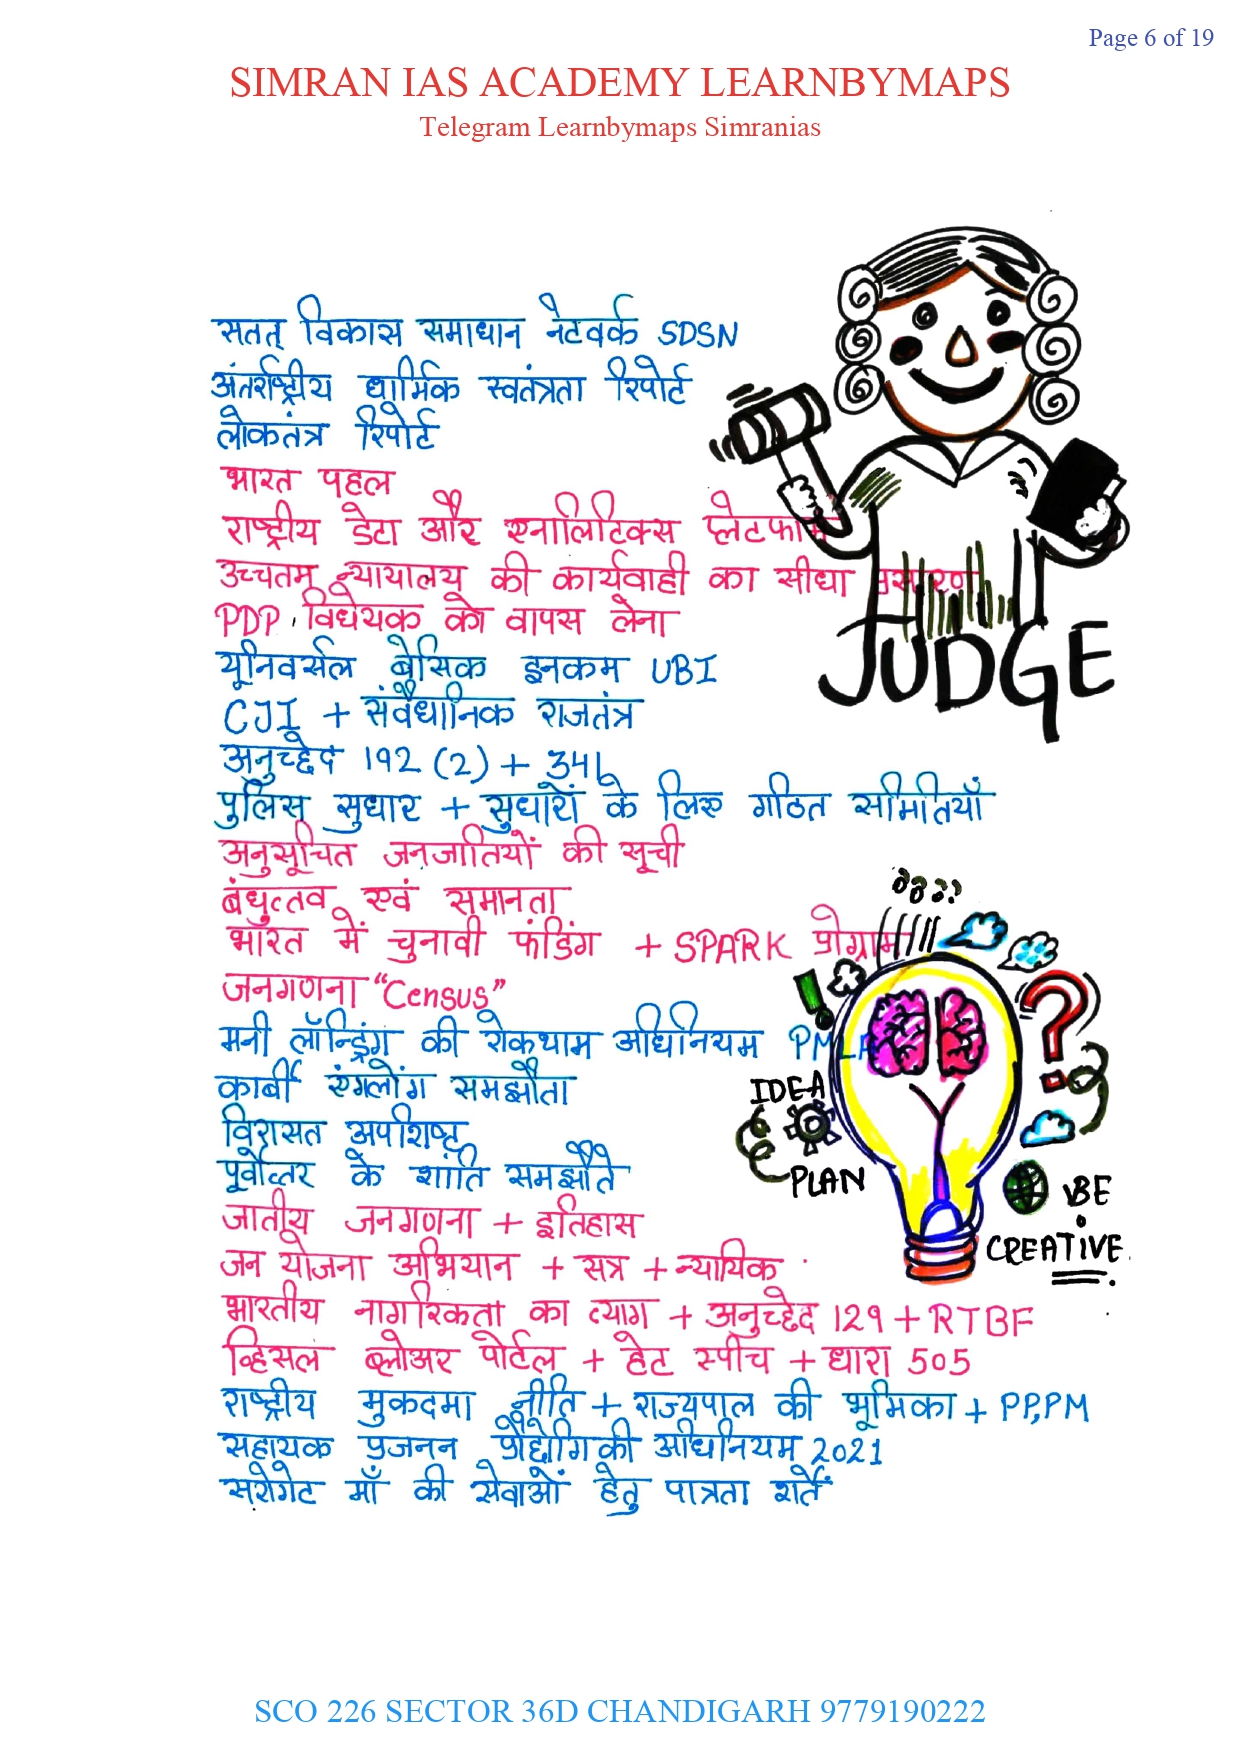 Page 6 of 19
SIMRAN IAS ACADEMY LEARNBYMAPS
Telegram Learnbymaps Simranias
सतत् विकास समाधान नेटवर्क SDSN
अंतर्राष्ट्रीय धार्मिक स्वतंत्रता रिपोर्ट
लोकतंत्र रिपोर्ट
भारत पहल
राष्ट्रीय डेटा और एनालिटिक्स प्लेटफार्म
उच्चतम् न्यायालय की कार्यवाही का सीधा प्रसारण
PDP विधेयक को वापस लेना
JUDGE
यूनिवर्सल बेसिक इनकम UBI
CJI + संवैधानिक राजतंत्र
अनुच्छेद 192 (2) + 341
पुलिस सुधार + सुधारों के लिए गठित समितियाँ
अनुसूचित जनजातियों की सूची
बंधुत्तव एवं समानता
भारत में चुनावी फंडिंग + SPARK प्रोग्राम
जनगणना “Census”
मनी लॉन्ड्रिंग की रोकथाम अधिनियम PMLA
कार्बी एंगलोंग समझौता
IDEA
विरासत अपशिष्ट
पूर्वोत्तर के शांति समझौते
PLAN
BE
CREATIVE
जातीय जनगणना + इतिहास
जन योजना अभियान + सत्र + न्यायिक
भारतीय नागरिकता का त्याग + अनुच्छेद 129 + RTBF
व्हिसल ब्लोअर पोर्टल + हेट स्पीच + धारा 505
राष्ट्रीय मुकदमा नीति + राज्यपाल की भूमिका + PP,PM
सहायक प्रजनन प्रौद्योगिकी अधिनियम 2021
सरोगेट माँ की सेवाओं हेतु पात्रता शर्तें
SCO 226 SECTOR 36D CHANDIGARH 9779190222